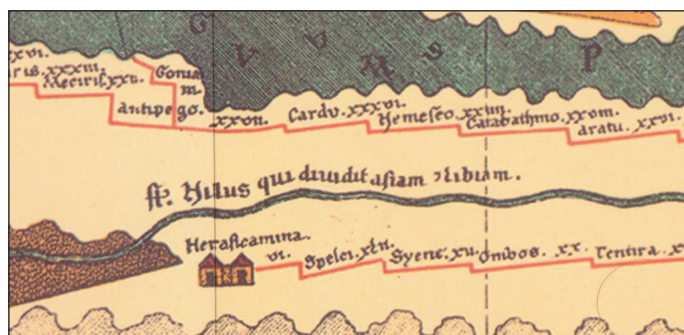 C V V M S P
xxvi.
ris. xxxiii. Meciris. xxv. Gonia
m.
antipe go. xxvii. Cardu. xxxvi. Nemeseo. xxiiii. Catabathmo. xxviii. aratu. xxvi.
fl. Nilus qui diuidit asiam et libiam.
Herasicamina.
vi. Spelci. xlii. Syene. xv. Ombos. xx. Tentira. x